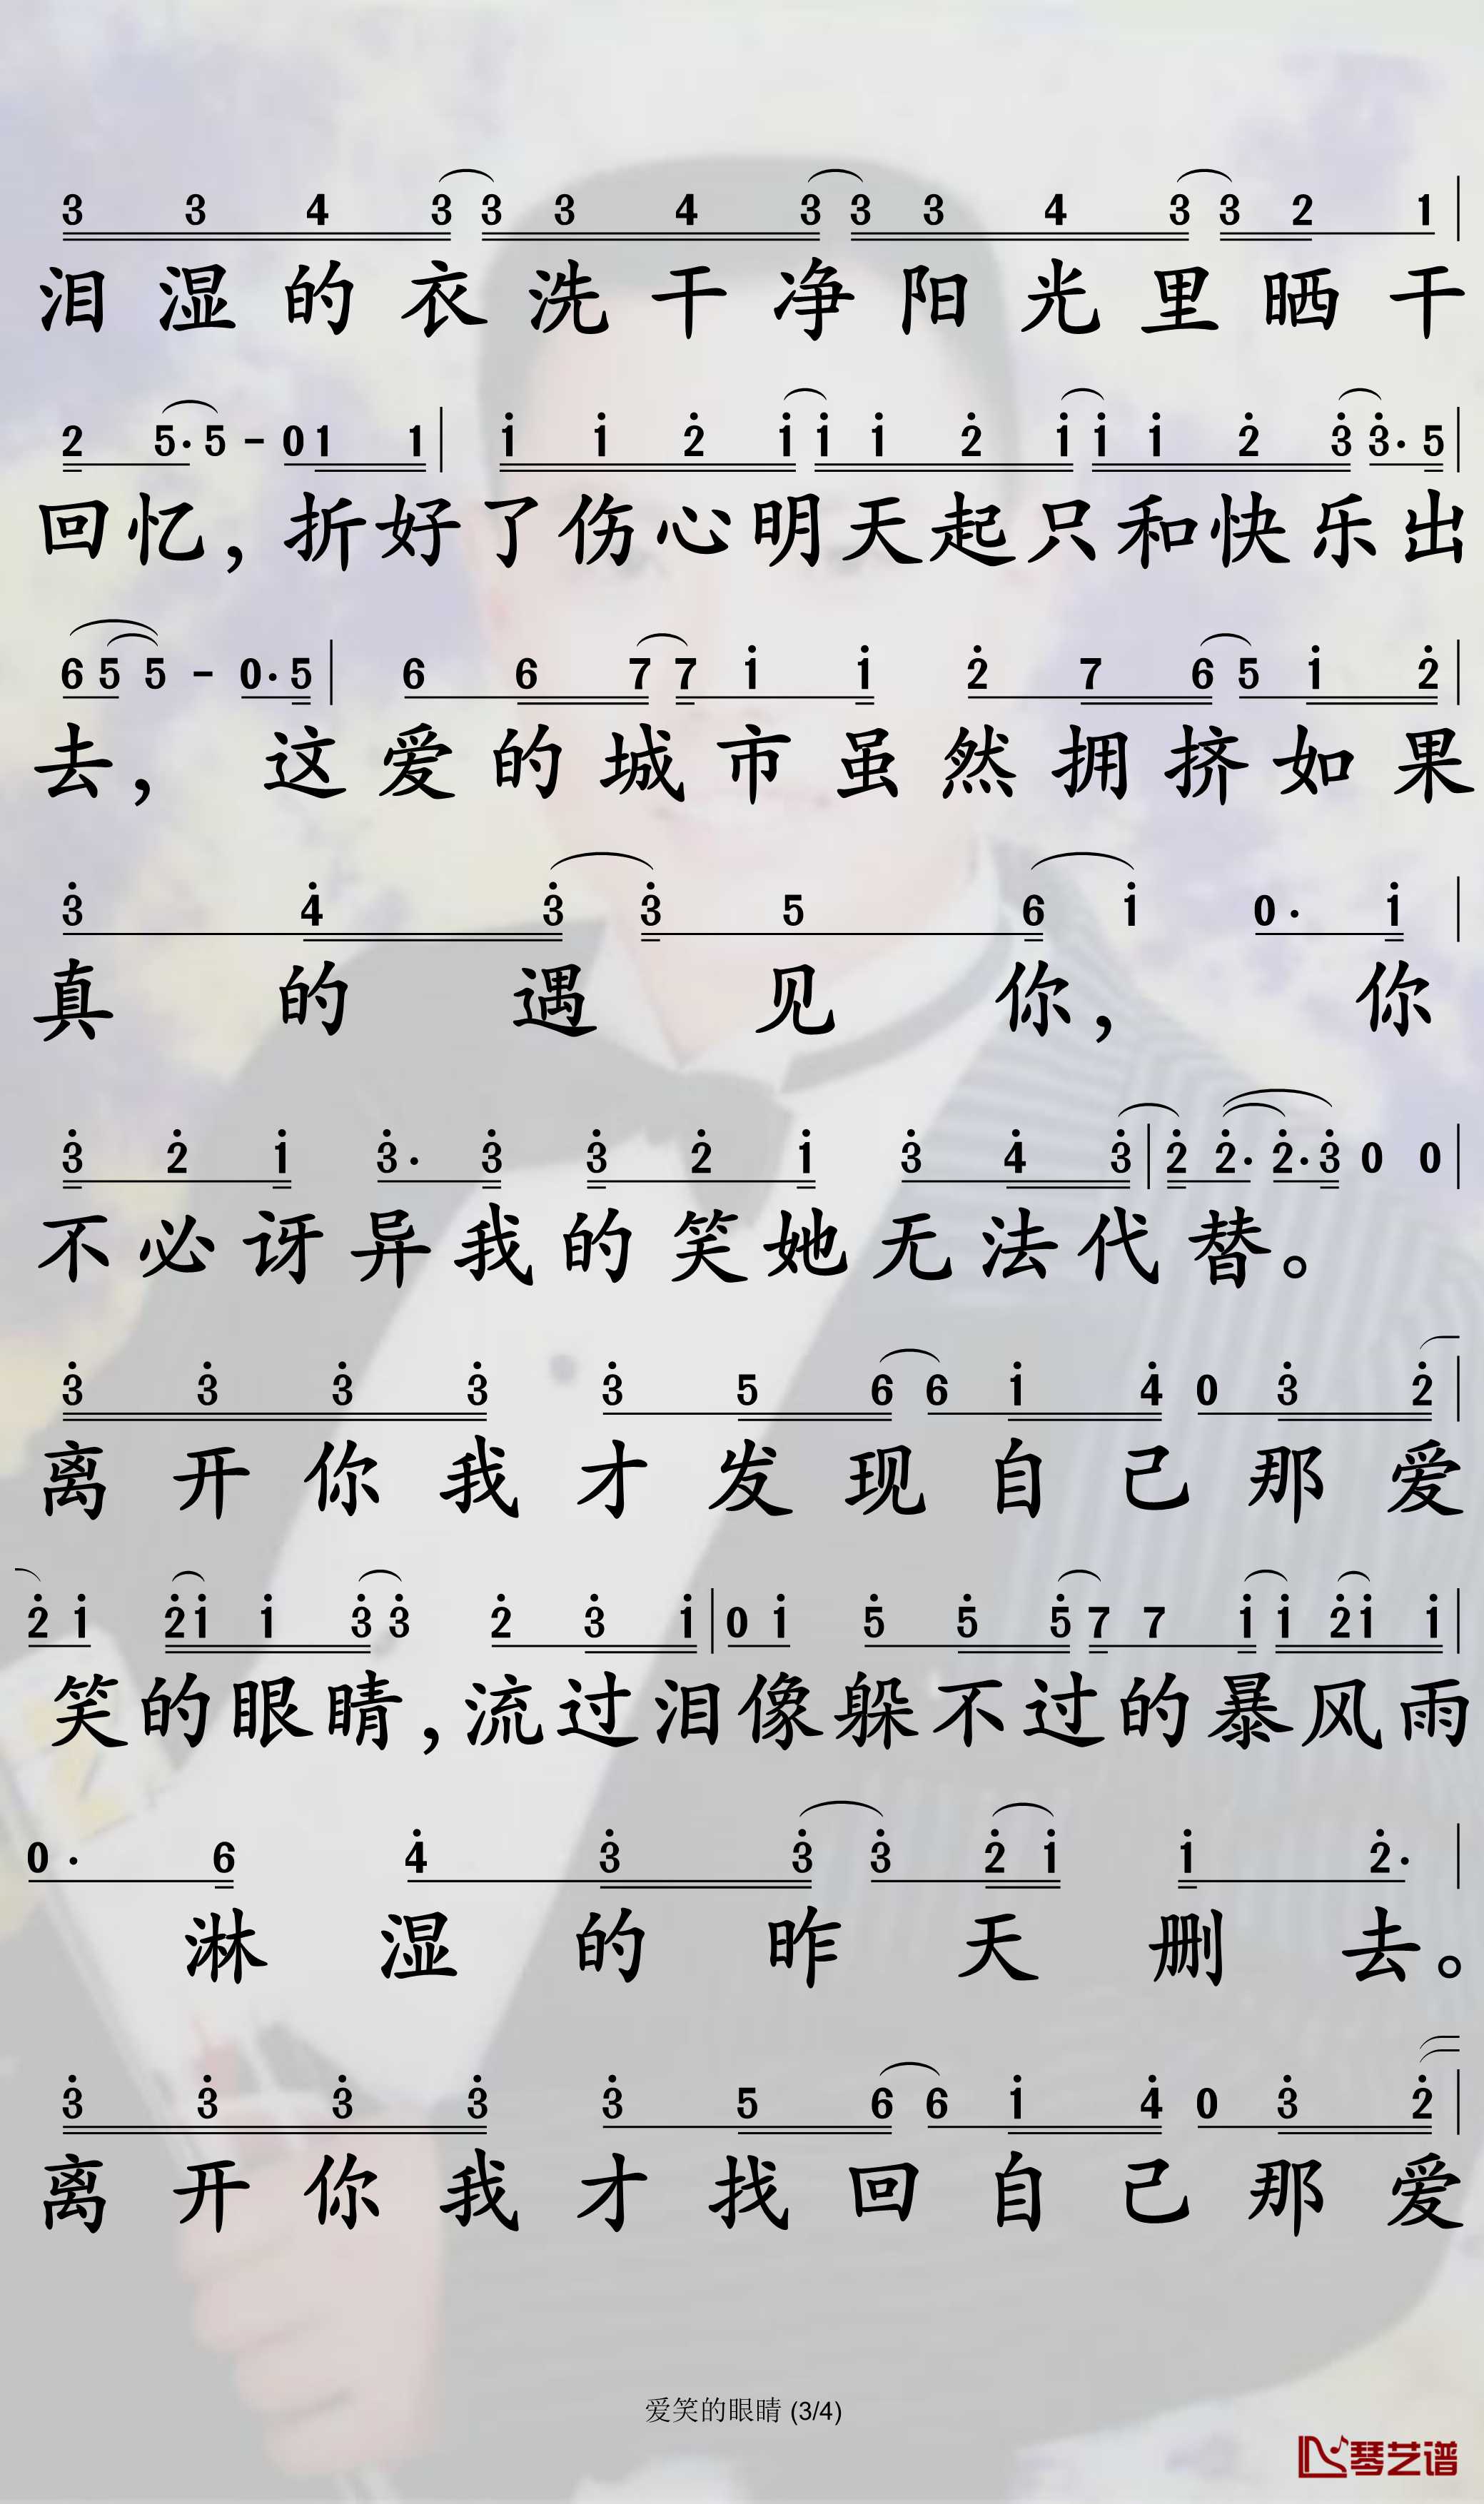 3 3 4 3 3 3 4 3 3 3 4 3 3 2 1
泪湿的衣洗干净阳光里晒干
2 5· 5 - 0 1 1 | 1 1 2 1 1 1 2 1 1 1 2 3 3· 5
回忆,折好了伤心明天起只和快乐出
6 5 5 - 0· 5 | 6 6 7 7 1 1 2 7 6 5 1 2
去,这爱的城市虽然拥挤如果
3 4 3 3 5 6 1 0· 1
真的遇见你,你
3 2 1 3· 3 3 2 1 3 4 3 | 2 2· 2· 3 0 0
不必讶异我的笑她无法代替。
3 3 3 3 3 5 6 6 1 4 0 3 2
离开你我才发现自己那爱
2 1 2 1 1 3 3 2 3 1 | 0 1 5 5 5 7 7 1 1 2 1 1
笑的眼睛,流过泪像躲不过的暴风雨
0· 6 4 3 3 3 2 1 1 2·
淋湿的昨天删去。
3 3 3 3 3 5 6 6 1 4 0 3 2
离开你我才找回自己那爱
爱笑的眼睛 (3/4)
琴艺谱